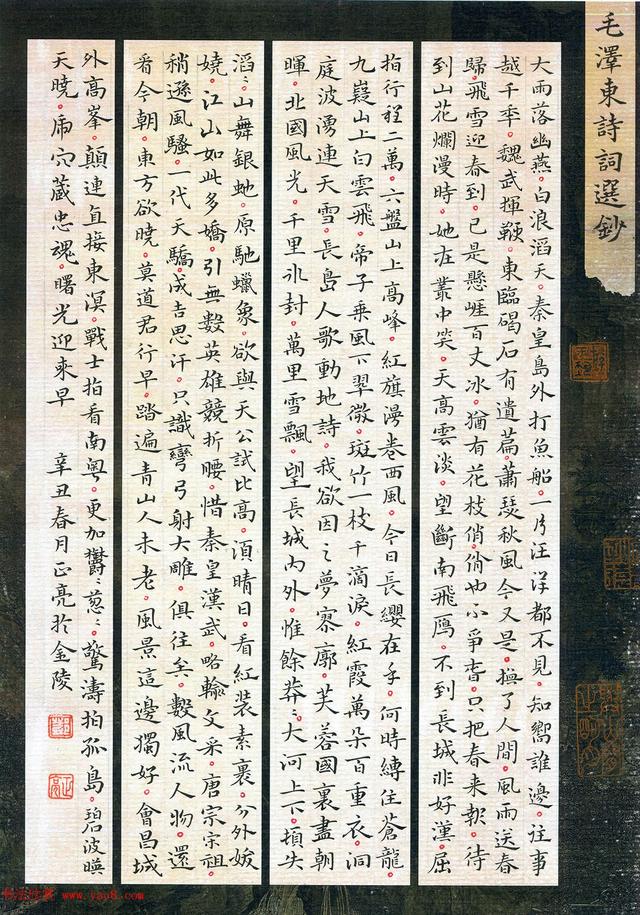 毛澤東詩詞選鈔
大雨落幽燕。白浪滔天。秦皇島外打魚船。一片汪洋都不見。知嚮誰邊。往事
越千年。魏武揮鞭。東臨碣石有遺篇。蕭瑟秋風今又是。換了人間。風雨送春
歸飛雪迎春到。已是懸崖百丈冰。猶有花枝俏。俏也不爭春。只把春來報。待
到山花爛漫時。她在叢中笑。天高雲淡。望斷南飛鴈。不到長城非好漢。屈
指行程二萬。六盤山上高峰。紅旗漫卷西風。今日長纓在手。何時縛住蒼龍。
九嶷山上白雲飛。帝子乘風下翠微。斑竹一枝千滴淚。紅霞萬朵百重衣。洞
庭波湧連天雪。長島人歌動地詩。我欲因之夢寥廓。芙蓉國裏盡朝
暉。北國風光。千里冰封。萬里雪飄。望長城內外。惟餘莽〻。大河上下。頓失
滔〻。山舞銀蛇。原馳蠟象。欲與天公試比高。須晴日。看紅裝素裹。分外妖
嬈。江山如此多嬌。引無數英雄競折腰。惜秦皇漢武。略輸文采。唐宗宋祖。
稍遜風騷。一代天驕。成吉思汗。只識彎弓射大雕。俱往矣。數風流人物。還
看今朝。東方欲曉。莫道君行早。踏遍青山人未老。風景這邊獨好。會昌城
外高峯。顛連直接東溟。戰士指看南粵。更加鬱〻蔥〻。驚濤拍孤島。碧波映
天曉。虎穴藏忠魂。曙光迎來早 辛丑春月正亮於金陵